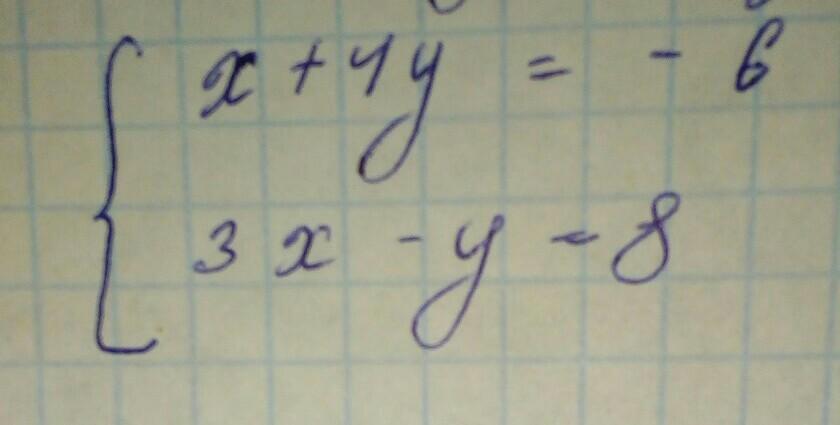 x + 4y = - 6
3x - y = 8